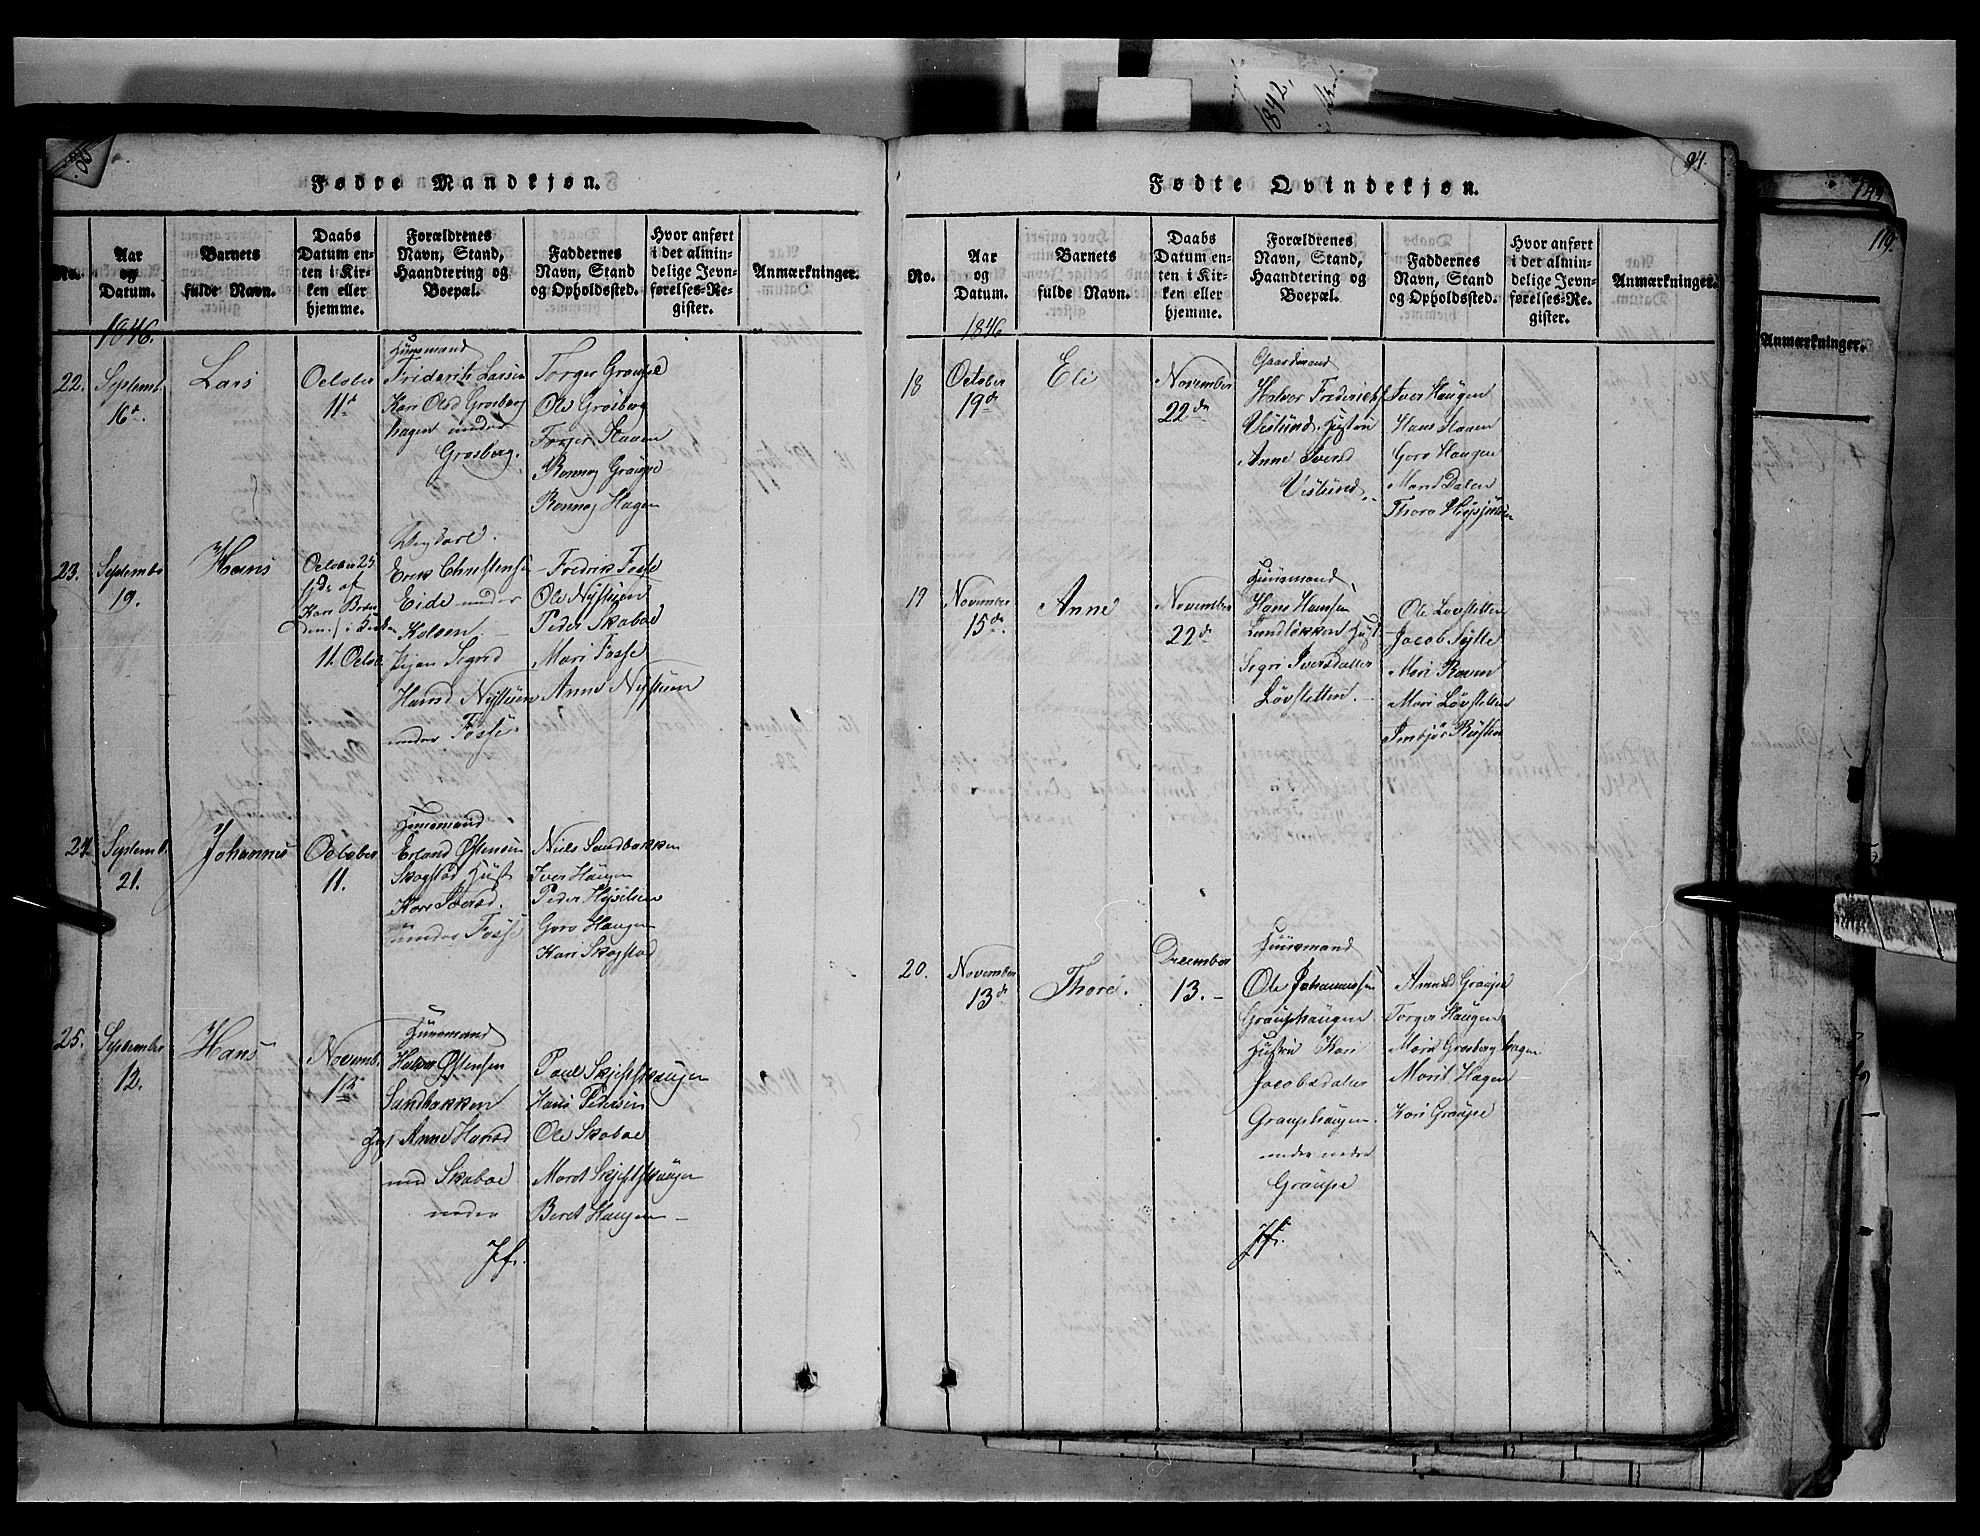 Fødte Mandkjøn.
No.
Aar og Datum.
Barnets fulde Navn.
Daabs Datum enten i Kirken eller hjemme.
Forældrenes Navn, Stand, Haandtering og Boepæl.
Faddernes Navn, Stand og Opholdssted.
Hvor anført i det almindelige Jevnførelses-Register.
Anmærkninger.
1846.
22.
Septemb.
16d.
Lars
October
11d
Huusmand
Friderik Larsen
Kari Olsd Grosberg
hagen under
Grosberg.
Torger Graupe
Ole Grosberg
Torger Haugen
Ronnog Graupe
Ronnog Hagen
23.
Septembr
19.
Hans
October 25
11 Octob.
Ungkarl.
Erik Christensen
Eide under
Koloen
Pigen Segred
Hansd Nystuen
under Fosse
Fredrik Fosse
Ole Nystuen
Peder Skaboe
Mari Fosse
Anne Nystuen
24.
Septemb.
21.
Johannes
October
11.
Huusmand
Erland Østensen
Skogstad Hust
Kari Iversd.
under Fosse
Niels Sandbakken
Iver Haugen
Peder
Goro Haugen
Kari Skogstad
25.
September
12.
Hans
Novemb.
1ste
Huusmand
Halvor Østensen
Sandbakken
Anne Hansd
Skaboe
under
Paul
Hans Pedersen
Ole Skaboe
Marit
Beret Haugen
Fødte Qvindekjøn.
94.
No.
Aar og Datum.
Barnets fulde Navn.
Daabs Datum enten i Kirken eller hjemme.
Forældrenes Navn, Stand, Haandtering og Boepæl.
Faddernes Navn, Stand og Opholdssted.
Hvor anført i det almindelige Jevnførelses-Register.
Anmærkninger.
1846
18
October
19de
Eli
November
22de
Gaardmand
Halvor Frederichs
Vislund Hustru
Anne Iversd
Vislund.
Iver Haugen
Hans Haaen
Goro Haugen
Marit Dalen
Thora
19
November
15de.
Anne
November
22de
Huusmand
Hans Hansen
Lundløkken Hust
Segri Iversdatter
Løvstetten.
Ole Løvstetten
Jacob Sylte
Mari
Mari Løvstetten
Imbjør
20.
November
13de
Thore.
December
13.
Huusmand
Ole Johannessen
Graupehaugen
Hustru Kari
Jacobsdatter
Graupehaugen.
under
Graupe
Amund Graupe
Torger Haugen
Marie Grosberghagen
Marit Hagen
Kari Graupe
1842.
119.
Anmærkninger.